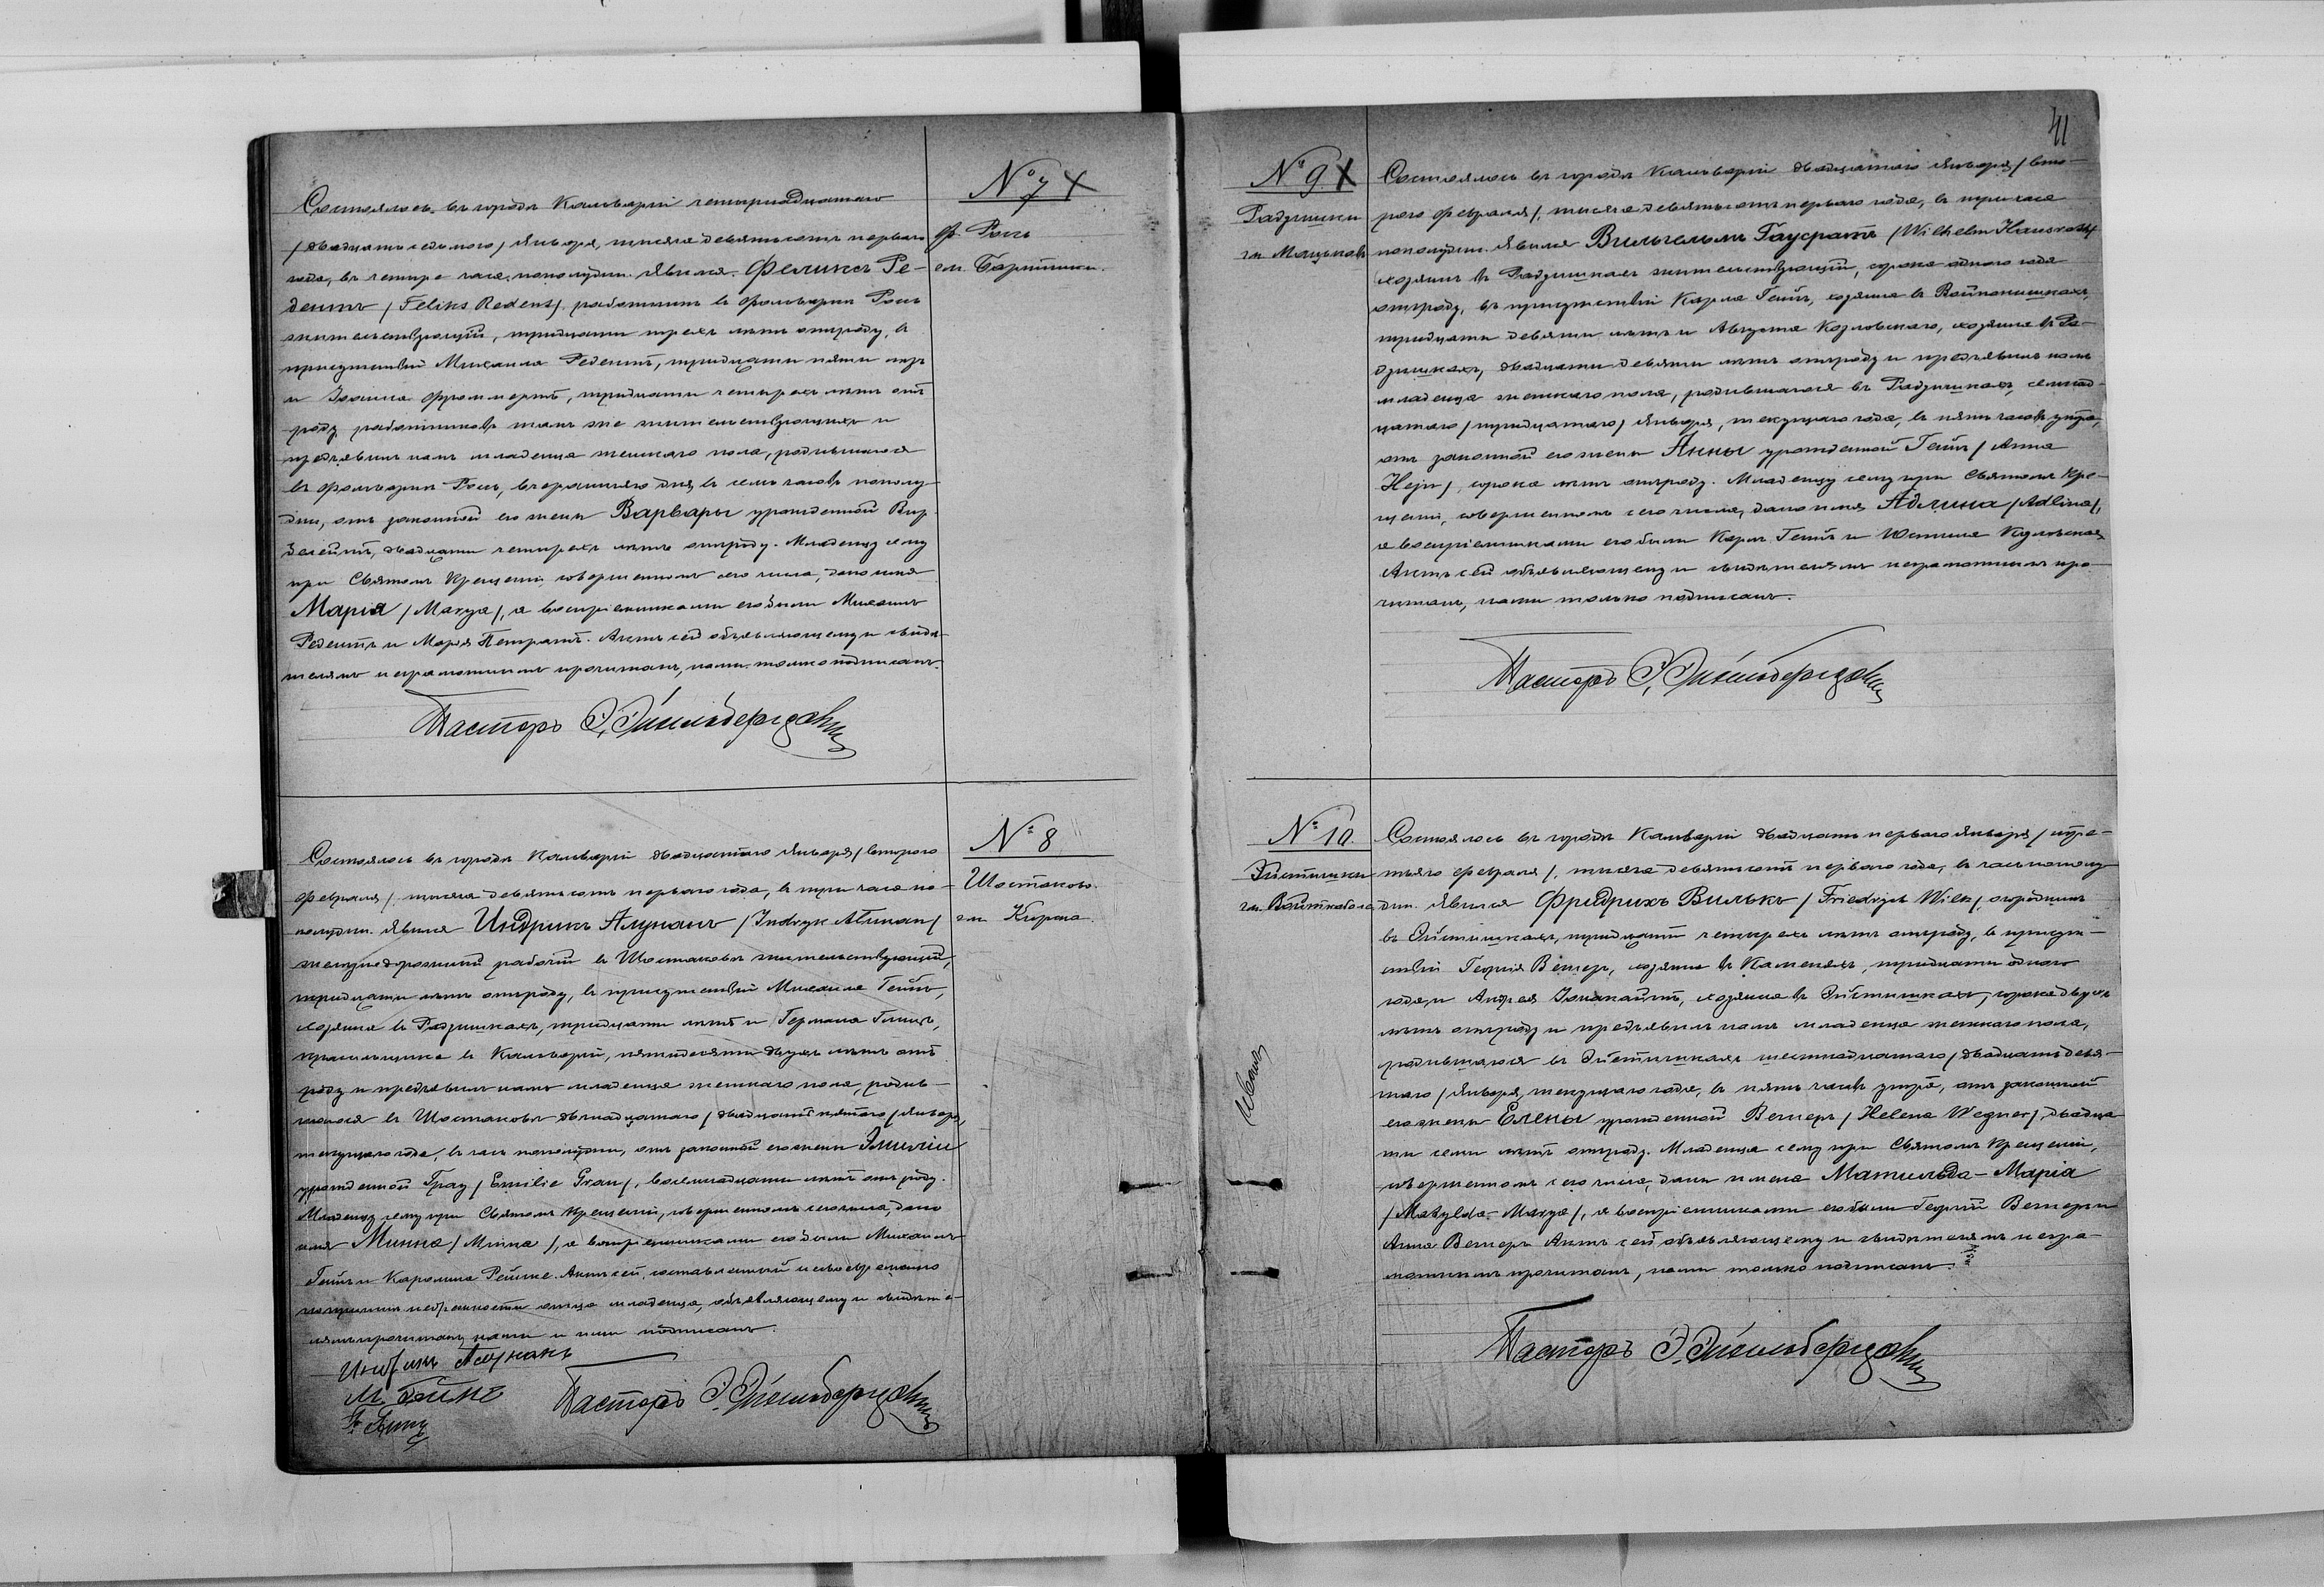 № 7 X
ф. Рось
гм. Бартники.
Состоялось въ городѣ Кальваріи четырнадцатаго
/двадцать седьмого/ Января, тысяча девятьсотъ перваго
года, въ четыре часа пополудни. Явился Феликсъ Ре-
дентъ /Feliks Redent/ работникъ въ фольваркѣ Рось
жительствующій, тридцати трехъ лѣтъ отъ роду, въ
присутствіи Михаила Редентъ, тридцати пяти лѣтъ
и Іоанна Фроммертъ, тридцати четырехъ лѣтъ отъ
роду, работниковъ тамъ же жительствующихъ и
предъявилъ намъ младенца женскаго пола, родившагося
въ фольваркѣ Рось, вчерашняго дня, въ семь часовъ пополу-
дни, отъ законной его жены Варвары урожденной
двадцати четырехъ лѣтъ отъ роду. Младенцу сему
при Святомъ Крещеніи, совершенномъ сего числа, дано имя
Марія /Marya/, а воспріемниками его были Михаилъ
Редентъ и Марія Петратъ. Актъ сей объявляющему и свидѣ-
телямъ неграмотнымъ прочитанъ, нами только подписанъ.
Пасторъ Э.
№ 8
Шостаково.
гм. Кирсна.
Состоялось въ городѣ Кальваріи двадцатаго Января /второго
февраля/, тысяча девятьсотъ перваго года, въ три часа по-
полудни. Явился Индрикъ Алунанъ /Indryk Alunan/
желѣзнодорожный рабочій въ Шостаковѣ жительствующій,
тридцати лѣтъ отъ роду, въ присутствіи Михаила Гейнъ,
хозяина въ Радзишкахъ, тридцати лѣтъ и Германа
въ Кальваріи, пятидесяти двухъ лѣтъ отъ
роду и предъявилъ намъ младенца женскаго пола, родив-
шагося въ Шостаковѣ двѣнадцатаго /двадцать пятаго/ Января,
текущаго года, въ часъ пополудни, отъ законной его жены Эмиліи
урожденной Грау /Emilie Grau/, восемнадцати лѣтъ отъ роду.
Младенцу сему при Святомъ Крещеніи, совершенномъ сего числа, дано
имя Минна /Minna/, а воспріемниками его были Михаилъ
Гейнъ и Каролина Рейнке. Актъ сей, составленный несвоевременно
по причинѣ небрежности отца младенца, объявляющему и свидѣте-
лямъ прочитанъ, нами и ними подписанъ.
Индрикъ Алунанъ
М. Гейнъ
Пасторъ Э.
41
№ 9 X
Радзишки
гм.
Состоялось въ городѣ Кальваріи двадцатаго Января /вто-
рого февраля/, тысяча девятьсотъ перваго года, въ три часа
пополудни. Явился Вильгельмъ Гаусратъ /Wilhelm Hausrath/
хозяинъ въ Радзишкахъ жительствующій, сорока одного года
отъ роду, въ присутствіи Карла Гейнъ, хозяина въ
тридцати девяти лѣтъ и Августа Козловскаго, хозяина въ Ра-
дзишкахъ, двадцати девяти лѣтъ отъ роду и предъявилъ намъ
младенца женскаго пола, родившагося въ Радзишкахъ, семнад-
цатаго /тридцатаго/ Января, текущаго года, въ пять часовъ утра,
отъ законной его жены Анны урожденной Гейнъ /Anna
Hejn/, сорока лѣтъ отъ роду. Младенцу сему при Святомъ Кре-
щеніи, совершенномъ сего числа, дано имя Адлина /Adlina/,
а воспріемниками его были Карлъ Гейнъ и Юстина Козловская.
Актъ сей объявляющему и свидѣтелямъ неграмотнымъ про-
читанъ, нами только подписанъ.
Пасторъ Э.
№ 10.
Эйстишки
гм. Войткоболе
Состоялось въ городѣ Кальваріи двадцать перваго Января /тре-
тьяго февраля/, тысяча девятьсотъ перваго года, въ часъ пополу-
дни. Явился Фридрихъ Вилькъ /Friedrych Wilk/, огородникъ
въ Эйстишкахъ, тридцати четырехъ лѣтъ отъ роду, въ присут-
ствіи Георгія Вегнеръ, хозяина въ Каменкахъ, тридцати одного
года, и Андрея хозяина въ Эйстишкахъ, сорока двухъ
лѣтъ отъ роду и предъявилъ намъ младенца женскаго пола,
родившагося въ Эйстишкахъ шестнадцатаго /двадцать девя-
таго/ Января, текущаго года, въ пять часовъ утра, отъ законной
его жены Елены урожденной Вегнеръ /Helene Wegner/, двадца-
ти семи лѣтъ отъ роду. Младенцу сему при Святомъ Крещеніи,
совершенномъ сего числа, даны имена Матильда-Марія
/Matylda-Marya/, а воспріемниками его были Георгій Вегнеръ и
Анна Вегнеръ. Актъ сей объявляющему и свидѣтелямъ негра-
мотнымъ прочитанъ, нами только подписанъ.
Пасторъ Э.